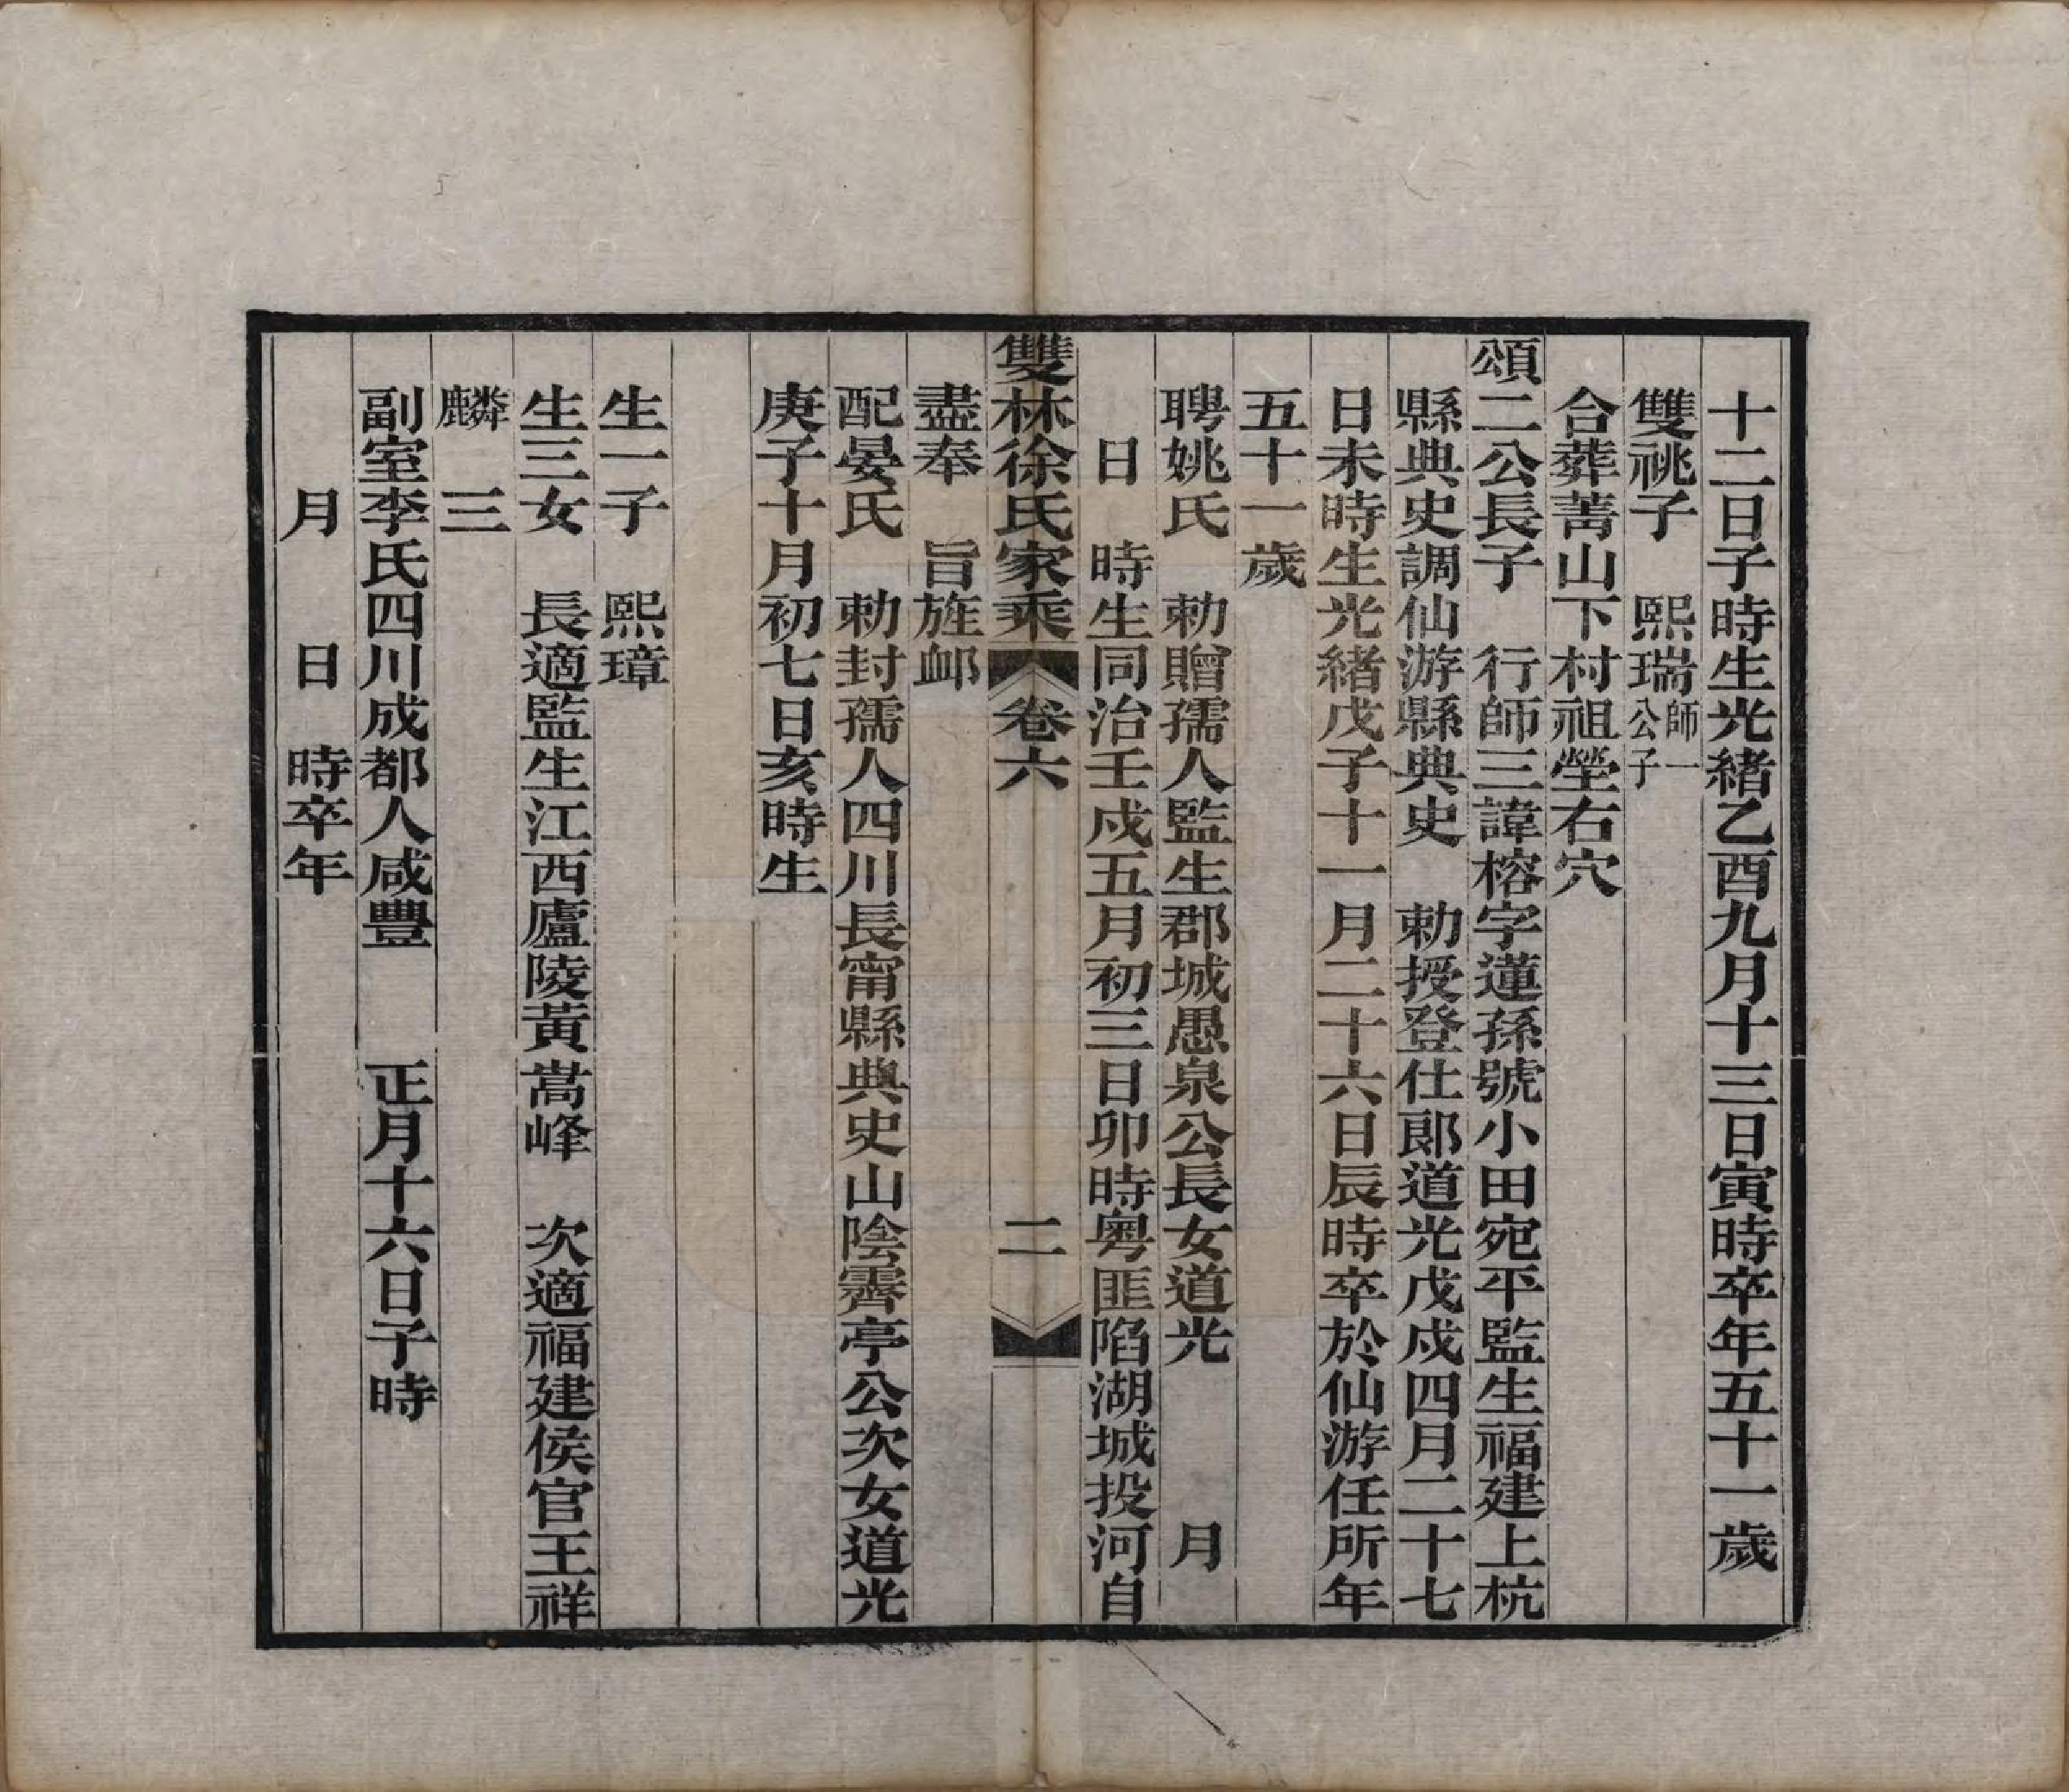 十二日子時生光緒乙酉九月十三日寅時卒年五十一歲
雙祧子　熙瑞師一公子
合葬菁山下村祖塋右穴
頌二公長子　行師三諱榕字蓮孫號小田宛平監生福建上杭
縣典史調仙游縣典史　勅授登仕郎道光戊戌四月二十七
日未時生光緒戊子十一月二十六日辰時卒於仙游任所年
五十一歲
聘姚氏　勅贈孺人監生郡城愚泉公長女道光　　　月
日　時生同治壬戌五月初三日卯時粵匪陷湖城投河自
雙林徐氏家乘　卷六　二
盡奉　旨旌卹
配晏氏　勅封孺人四川長甯縣典史山陰霽亭公次女道光
庚子十月初七日亥時生
生一子　熙璋
生三女　長適監生江西廬陵黃嵩峰　次適福建侯官王祥
麟　三
副室李氏四川成都人咸豐　　正月十六日子時
月　　日　時卒年